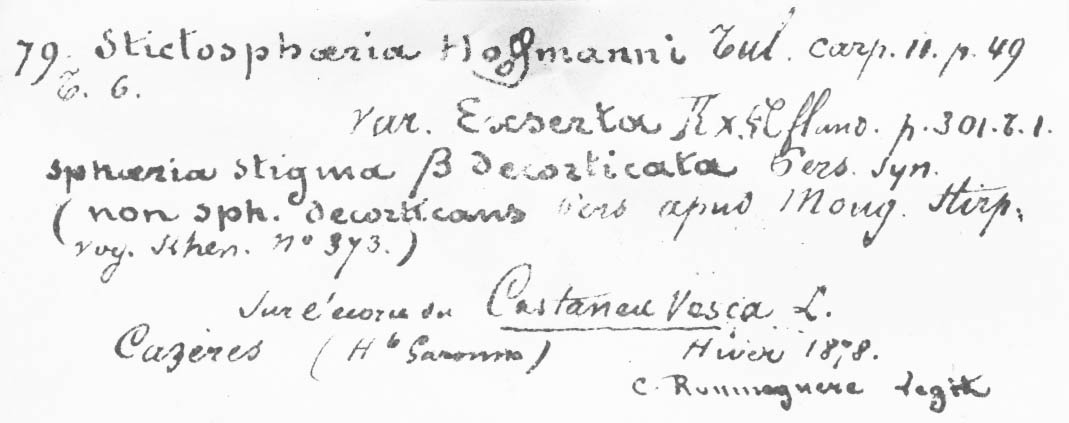 79. Stictosphæria Hoffmanni Tul. carp. II. p. 49
T. 6.
var. Exserta p. 301. t. 1.
Sphæria Stigma β decorticata Pers. Syn.
(non Sph. decorticans Pers apud Moug. Stirp.
vog. Rhen. N° 373.)
Sur l'écorce du Castanea Vesca L.
Cazères (Hte Garonne) Hiver 1878.
C. Roumeguère legit